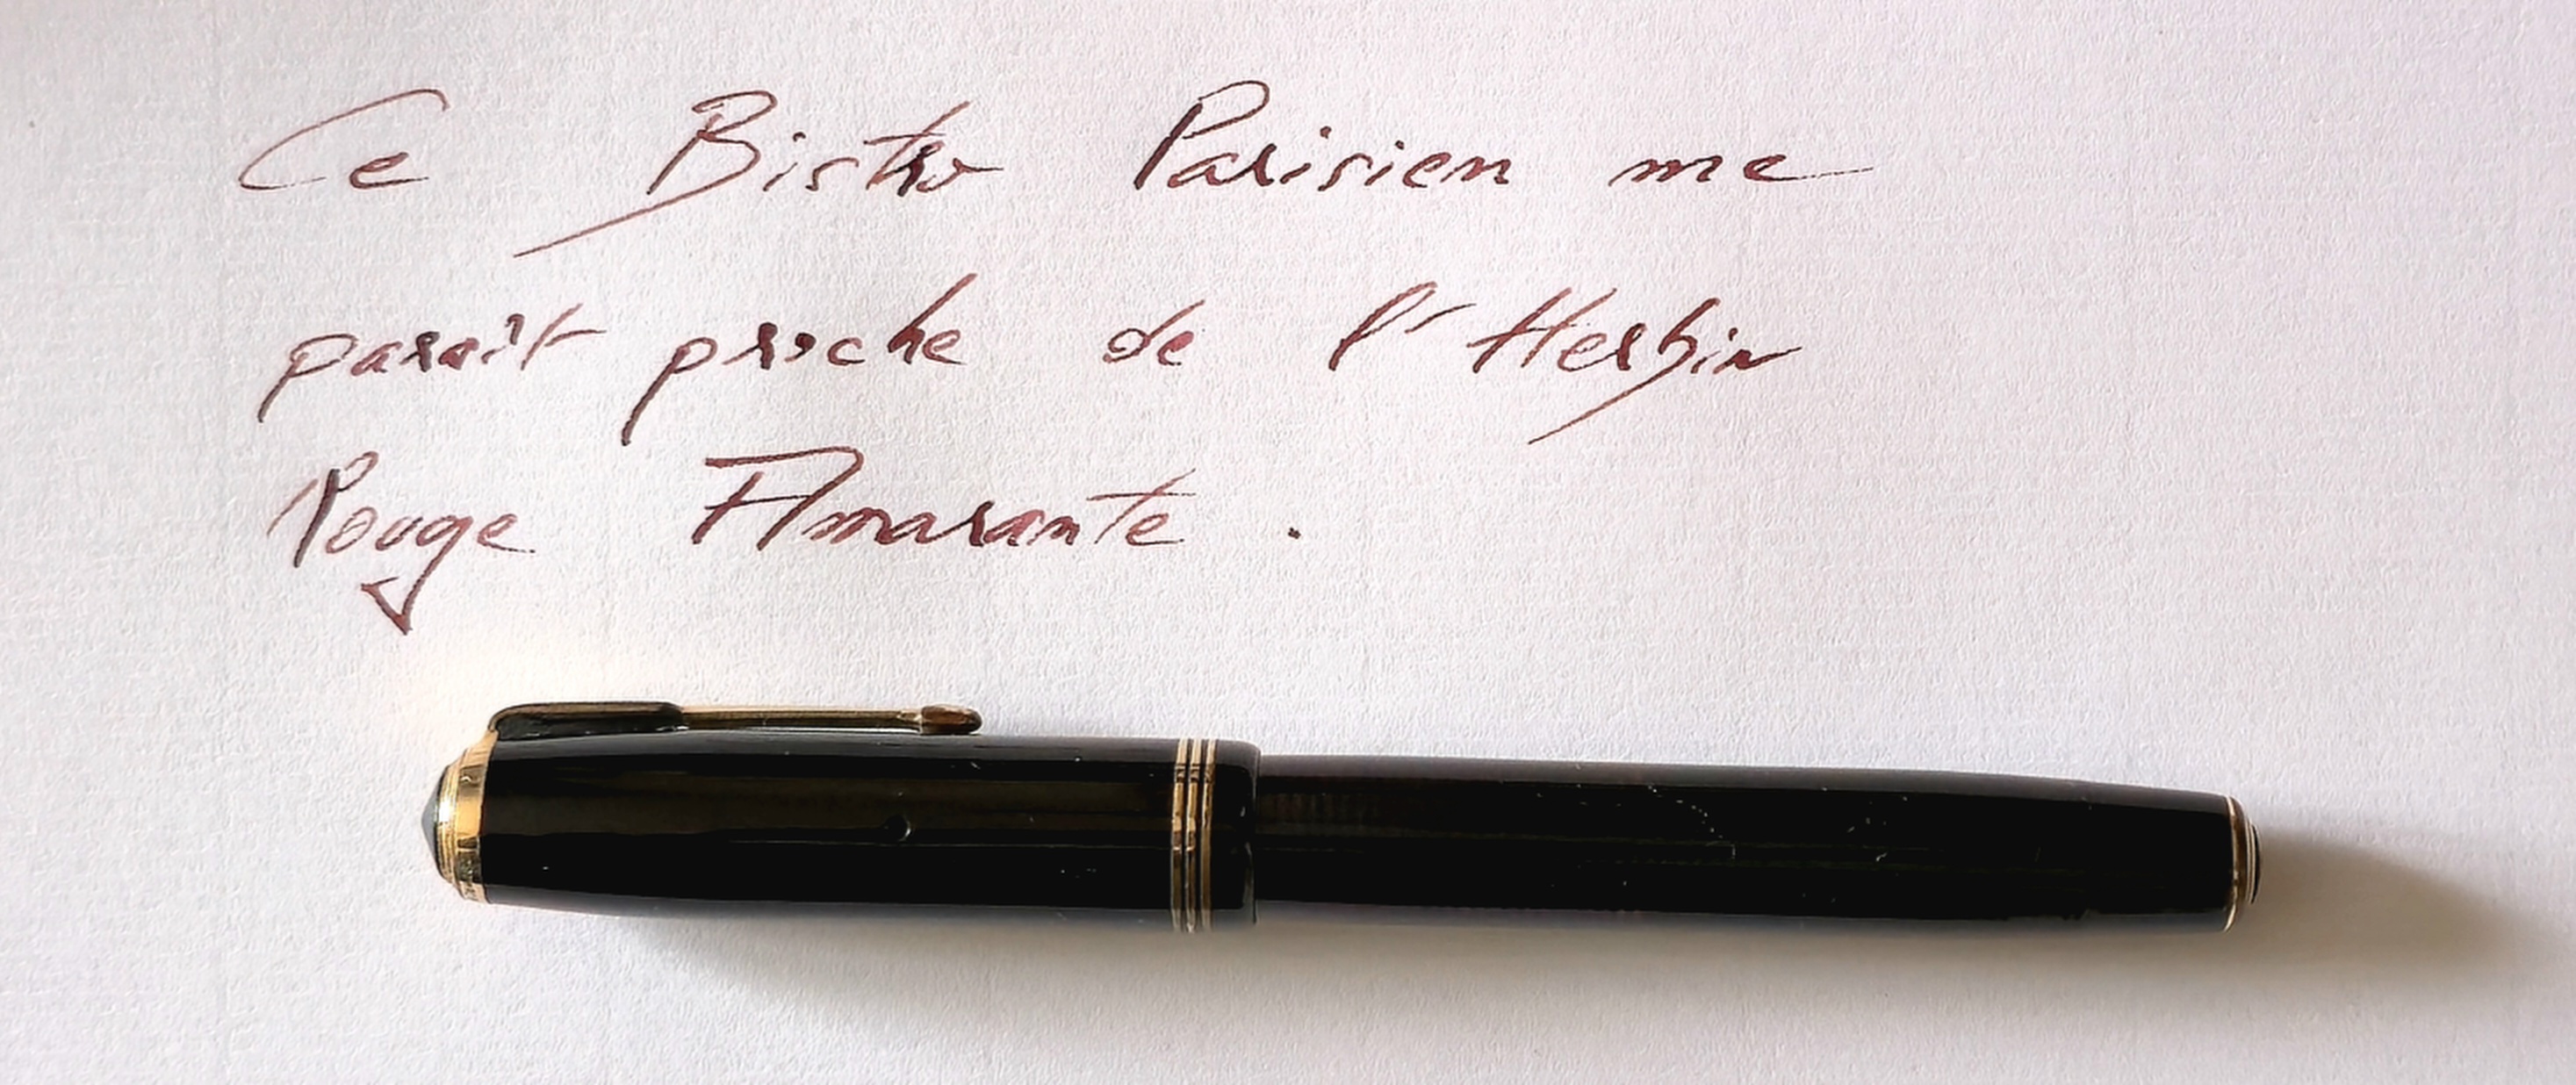 Ce Bistro Parisien me
paraît proche de l'Herbin
Rouge Amarante.